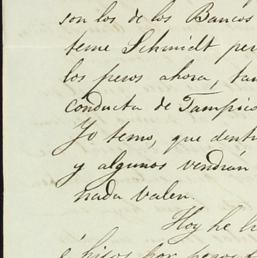 son los de los Bancos
teme Schmidt per
los pesos ahora, tan
conducta de Tampico
Yo temo, que dentr
y algunos vendrán
nada valen.
Hoy he l
é hijos por pesos